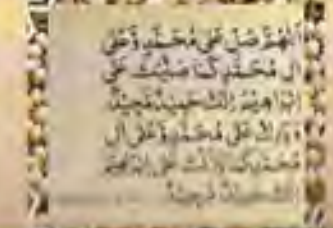 اللهم صل على محمد وعلى
آل محمد كما صليت على
إبراهيم إنك حميد مجيد
وبارك على محمد وعلى آل
محمد كما باركت على إبراهيم
إنك حميد مجيد